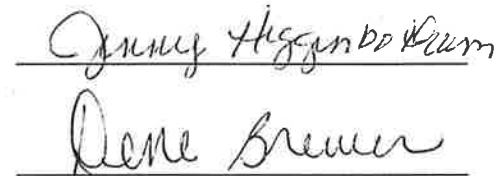 Jenny Higginbotham
Dene Brewer